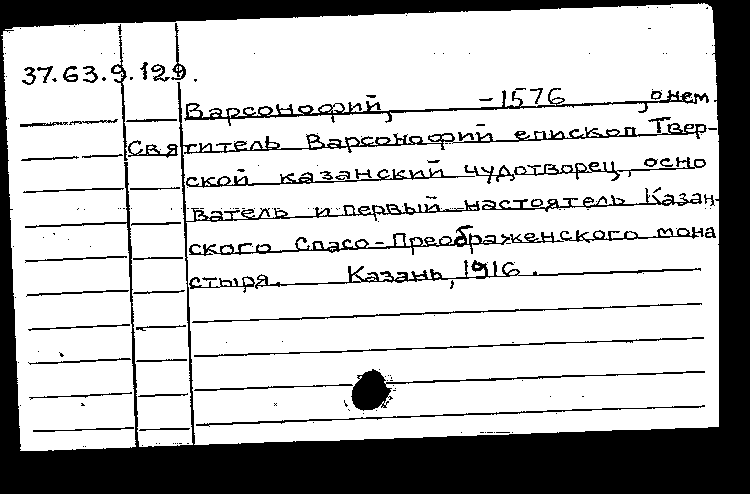 37.63.9.129.
Варсонофий, -1576 , о нем.
Святитель Варсонофий епископ Твер-
ской казанский чудотворец, осно
ватель и первый настоятель Казан-
ского Спасо-Преображенского мона
стыря. Казань, 1916.